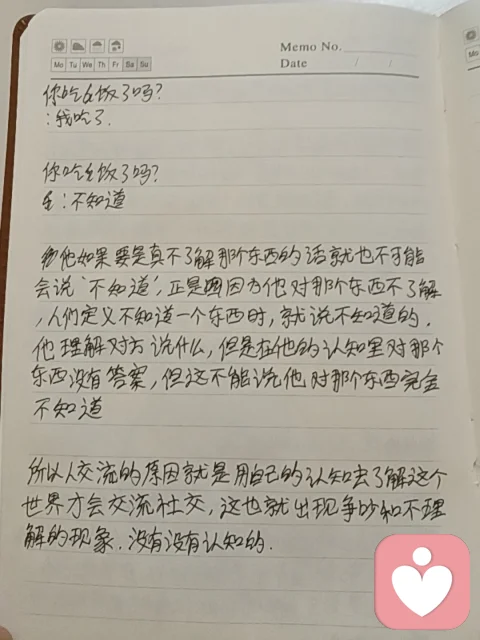 Memo No.
Mo Tu We Th Fr Sa Su
Date / /
Mo
你吃饭了吗?
:我吃了.
你吃饭了吗?
生:不知道
他如果要是真不了解那个东西的话就也不可能
会说“不知道”,正是因为他对那个东西不了解
,人们定义不知道一个东西时,就说不知道的.
他理解对方说什么,但是在他的认知里对那个
东西没有答案,但这不能说他对那个东西完全
不知道
所以人交流的原因就是用自己的认知去了解这个
世界才会交流社交,这也就出现争吵和不理
解的现象.没有没有认知的.